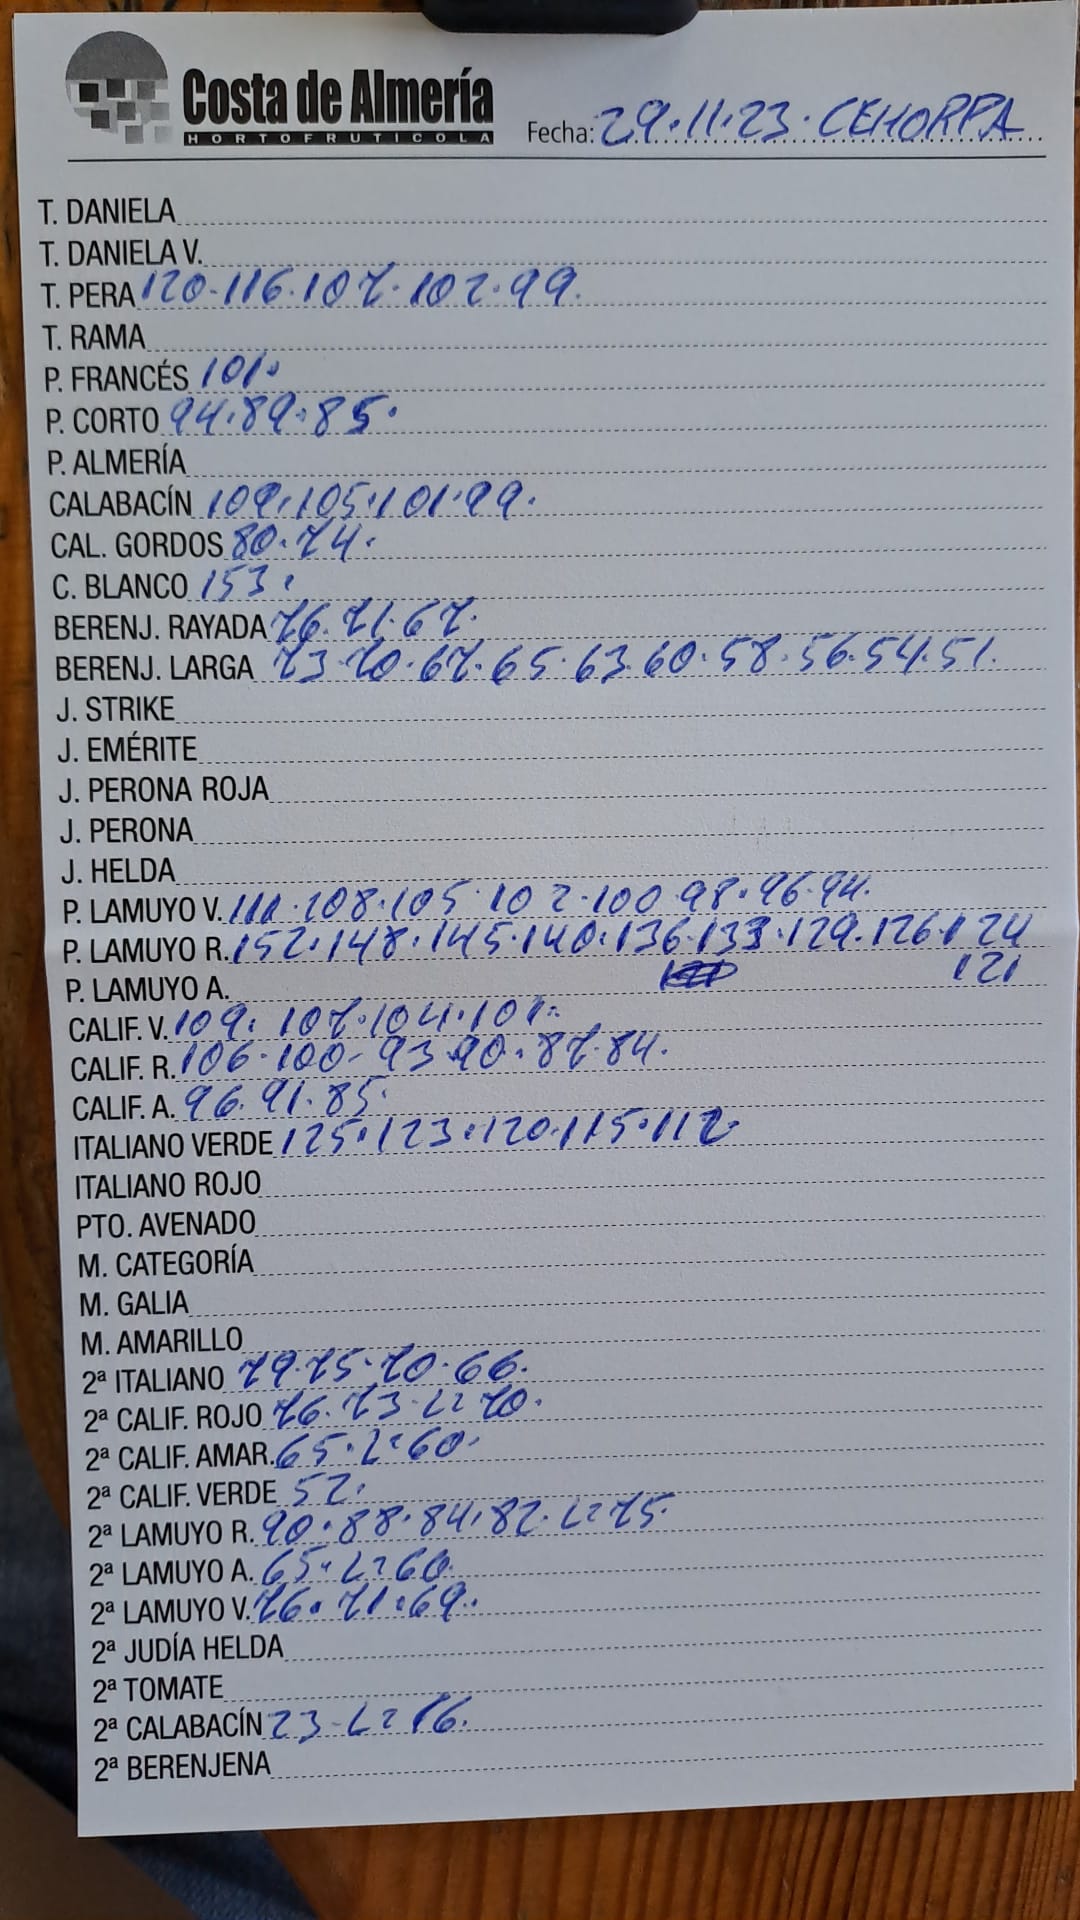 Costa de Almería
HORTOFRUTICOLA
Fecha: 29.11.23. CEHORPA
T. DANIELA
T. DANIELA V.
T. PERA 120.116.107.102.99.
T. RAMA
P. FRANCÉS 101.
P. CORTO 94.89.85.
P. ALMERÍA
CALABACÍN 109.105.101.99.
CAL. GORDOS 80.74.
C. BLANCO 153.
BERENJ. RAYADA 76.71.67.
BERENJ. LARGA 73.70.67.65.63.60.58.56.54.51.
J. STRIKE
J. EMÉRITE
J. PERONA ROJA
J. PERONA
J. HELDA
P. LAMUYO V. 111.108.105.102.100.98.96.94.
P. LAMUYO R. 152.148.145.140.136.133.129.126.124
121
P. LAMUYO A.
CALIF. V. 109.107.104.101.
CALIF. R. 106.100-93.90.87.84.
CALIF. A. 96.91.85.
ITALIANO VERDE 125.123.120.115.112.
ITALIANO ROJO
PTO. AVENADO
M. CATEGORÍA
M. GALIA
M. AMARILLO
2ª ITALIANO 79.75.70.66.
2ª CALIF. ROJO 76.73. 70.
2ª CALIF. AMAR. 65. 60.
2ª CALIF. VERDE 52.
2ª LAMUYO R. 90.88.84.82. 75.
2ª LAMUYO A. 65. 60.
2ª LAMUYO V. 76.71.69.
2ª JUDÍA HELDA
2ª TOMATE
2ª CALABACÍN 23- 16.
2ª BERENJENA